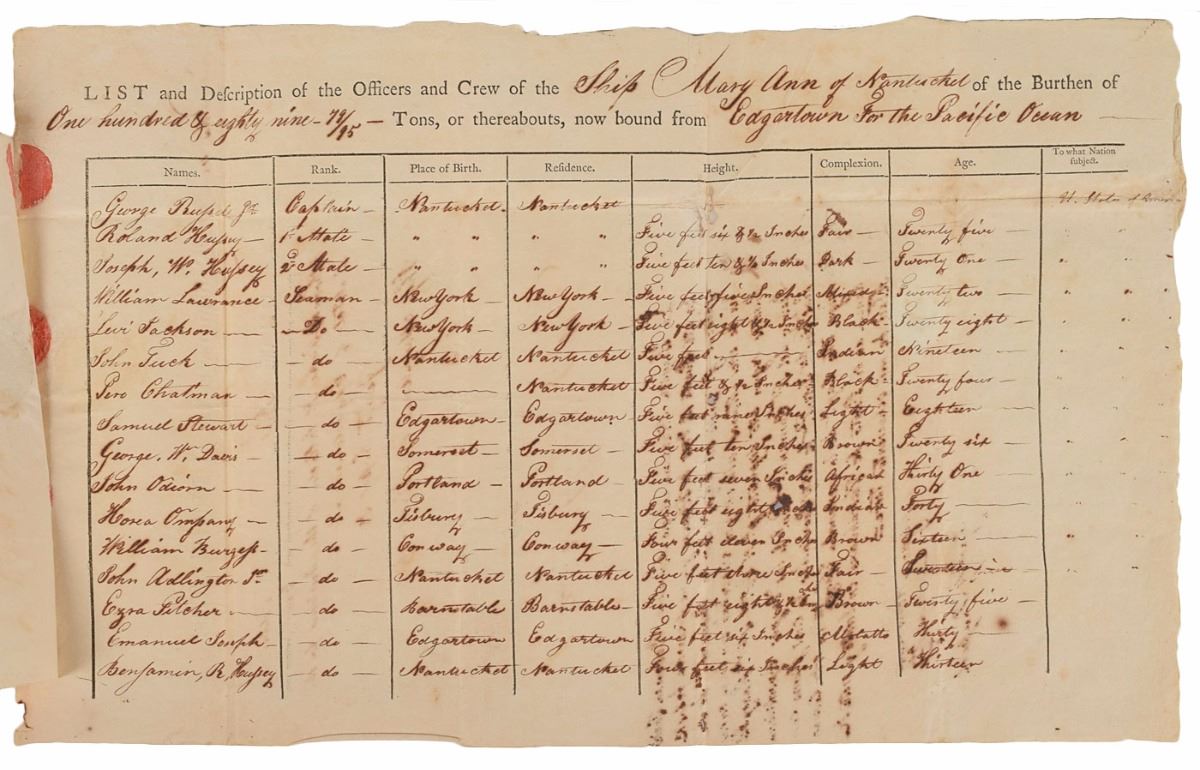 LIST and Deſcription of the Officers and Crew of the Ship Mary Ann of Nantucket of the Burthen of
One hundred & eighty nine - 74/95 - Tons, or thereabouts, now bound from Edgartown For the Pacific Ocean
Names. Rank. Place of Birth. Residence. Height. Complexion. Age. To what Nation subject.
George Jr Captain - Nantucket - Nantucket U. States of America
Roland Hussey - 1st Mate - " " " " Five feet six & ½ Inches Fair - Twenty five - " "
Joseph, W. Hussey 2d Mate - " " " " Five feet ten & ½ Inches Dark - Twenty One - " "
William Lawrance - Seaman - New York - New York - Five feet five Inches Mixed - Twenty two - " " "
Levi Jackson - Do - New York - New York - Five feet eight & ½ Inches Black - Twenty eight - " " "
John Tuck - do - Nantucket Nantucket Five feet - Indian Nineteen - " "
Pero Chatman - do - - Nantucket Five feet & ½ Inches Black - Twenty four - " "
Samuel Stewart - do - Edgartown Edgartown Five feet nine Inches Light - Eighteen - " "
George, W. Davis - do - Somerset - Somerset - Five feet ten Inches Brown Twenty six - " "
John Odiorn - do - Portland - Portland - Five feet seven Inches African Thirty One
Hosea Ompany - do - Tisbury - Tisbury - Five feet eight Inches Indian Forty -
William Burgess - do - Conway - Conway - Four feet eleven Inches Brown Sixteen - " "
John Adlington Jr - do - Nantucket Nantucket Five feet three Inches Fair - Seventeen -
Ezra Pilcher - do - Barnstable Barnstable - Five feet eight Brown - Twenty five -
Emanuel Joseph - do - Edgartown Edgartown Five feet six Inches Molatto Thirty -
Benjamin, R, Hussey - do - Nantucket Nantucket Four feet six Inches Light Thirteen